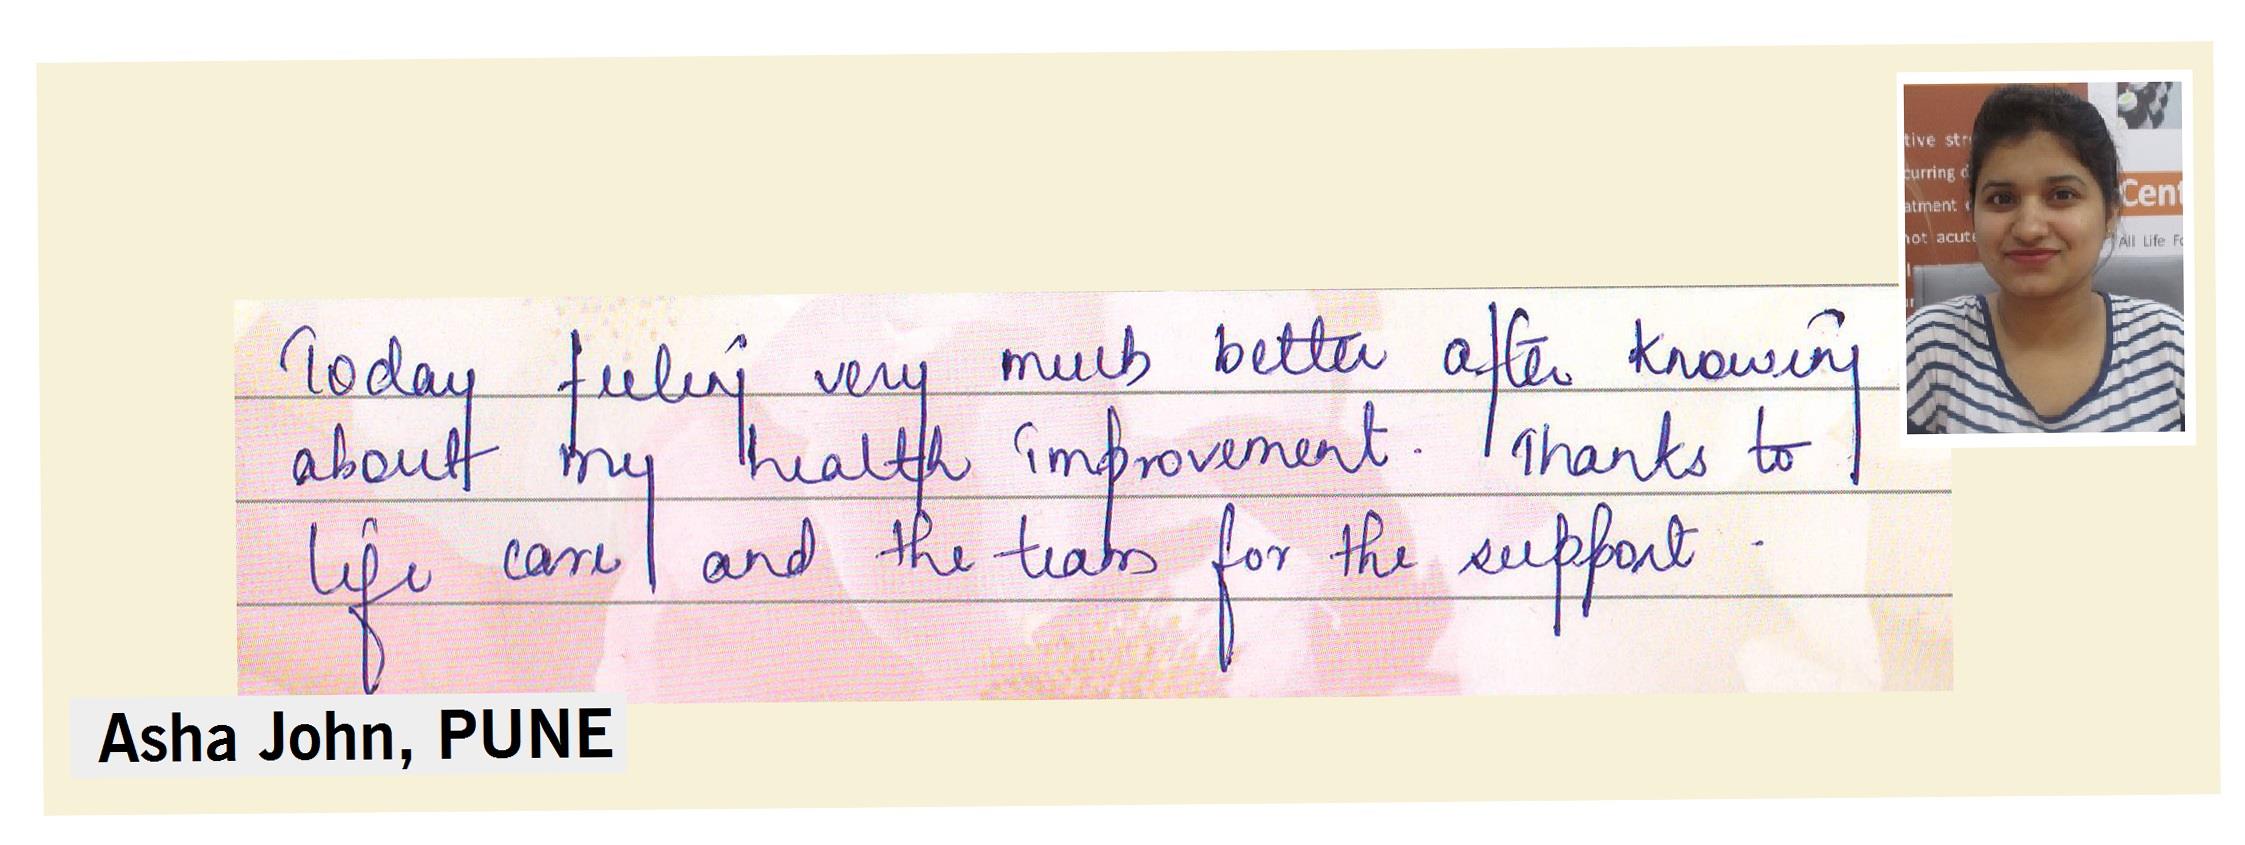 tive str
curring d
atment
not acute
Cent
All Life Fo
Today feeling very much better after knowing
about my health improvement. Thanks to
life care and the team for the support.
Asha John, PUNE